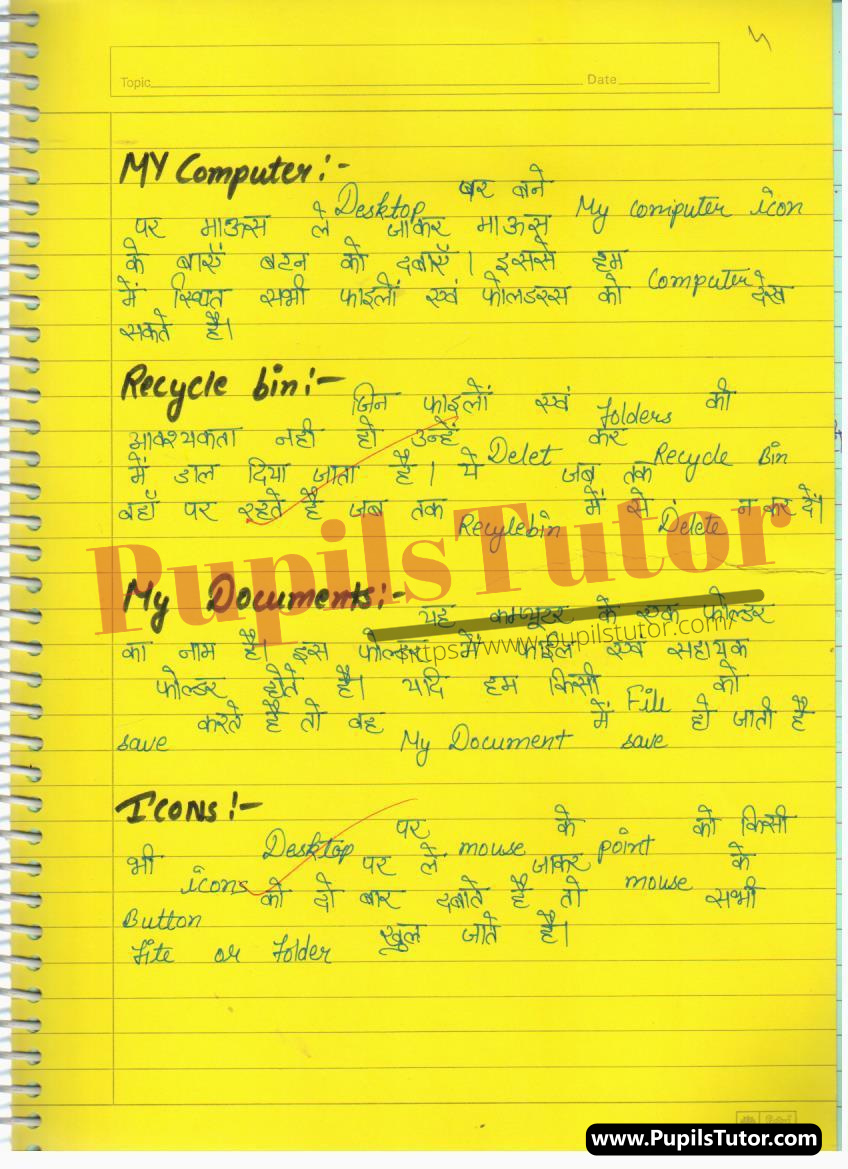 Topic Date
MY Computer:-
Desktop पर बने My computer icon
पर माऊस ले जाकर माऊस
के बाएँ बटन को दबाएँ। इससे हम Computer
में स्थित सभी फाइलों एवं फोलडरस को देख
सकते है।
Recycle bin:-
जिन फाइलों एवं Folders की
आवश्यकता नही हो उन्हें Delet कर Recycle Bin
में डाल दिया जाता है। ये जब तक
वहाँ पर रहते है जब तक Recylebin में से Delete न कर दें।
My Documents:-
यह कम्प्यूटर के एक फोल्डर
का नाम है। इस फोल्डर में फाइल एवं सहायक
फोल्डर होते है। यदि हम किसी File को
save करते है तो वह My Document में save हो जाती है
Icons:-
Desktop पर mouse के point को किसी
भी icons पर ले जाकर mouse के
Button को दो बार दबाते है तो सभी
File or Folder खुल जाते है।
PupilsTutor
https://www.pupilstutor.com/
www.PupilsTutor.com